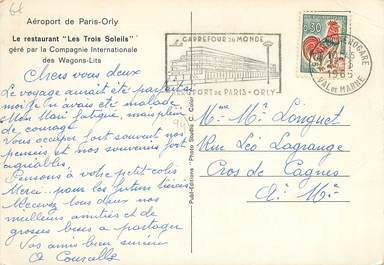 Aéroport de Paris-Orly
Le restaurant "Les Trois Soleils"
géré par la Compagnie Internationale
des Wagons-Lits
Chers vous deux
Le voyage aurait été parfait si
moi je n'avais été malade
Mon mari fatigué, mais plein
de courage
Vous occuper fort souvent nos
pensées et nos souvenirs fort
agréables.
Pensons à votre petit colis
Merci.. pour les futurs
Recevez tous deux nos
meilleurs amitiés et de
grosses bises a partager
Vos amis bien
A
Publi-Editions "Photo Studio C. Color"
CARREFOUR DU MONDE
AEROPORT DE PARIS-ORLY
VAL DE MARNE
1965
0,30
Mme Mr Longuet
Rue Léo Lagrange
Cros de Cagnes
A. Mmes